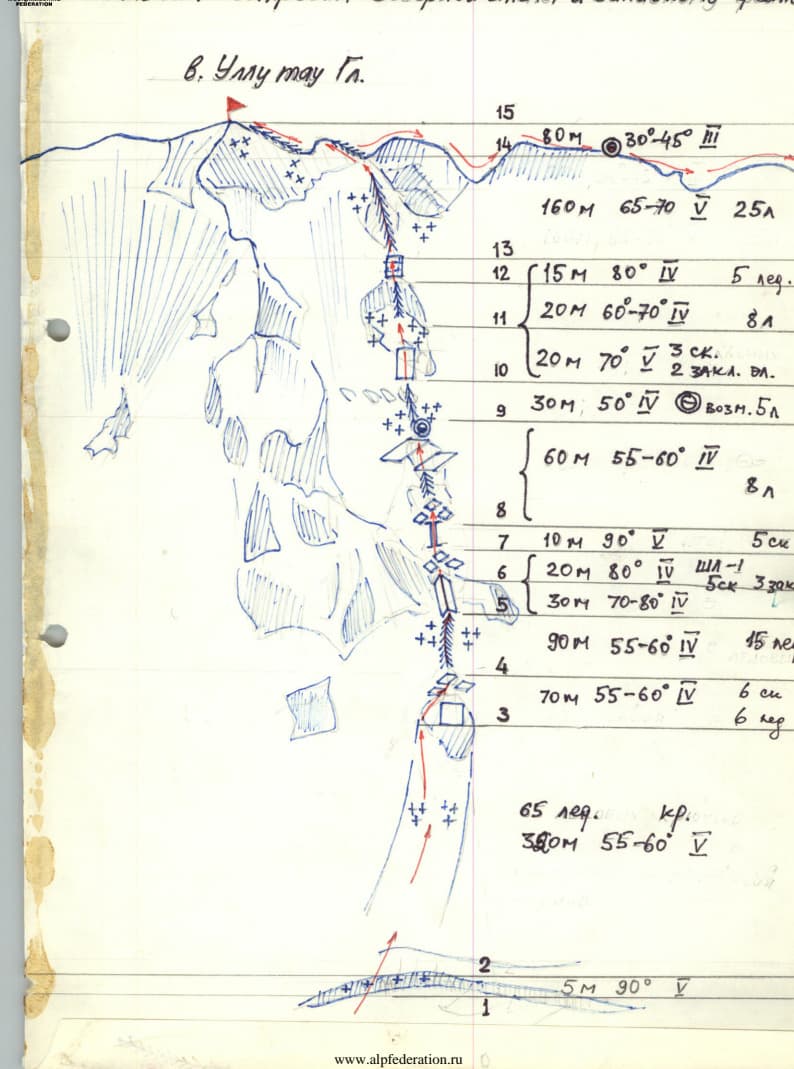 FEDERATION
в. Уллу тау Гл.
15
14 80м 30°-45° III
160м 65-70 V 25л
13
12 15м 80° IV 5 лед.
11 20м 60°-70° IV 8л
20м 70° V 3 ск.
10 2 ЗАКЛ. ЭЛ.
9 30м, 50° IV возм. 5л
60м 55-60° IV
8л
8
7 10м 90° V 5ск
6 20м 80° IV ШЛ-1
5ск 3 зак
5 30м 70-80° IV
90м 55-60° IV 15 ле
4
70м 55-60° IV 6 ск
3 6 лед
65 лед. кр.
55-60° V
2
5м 90° V
1
www.alpfederation.ru